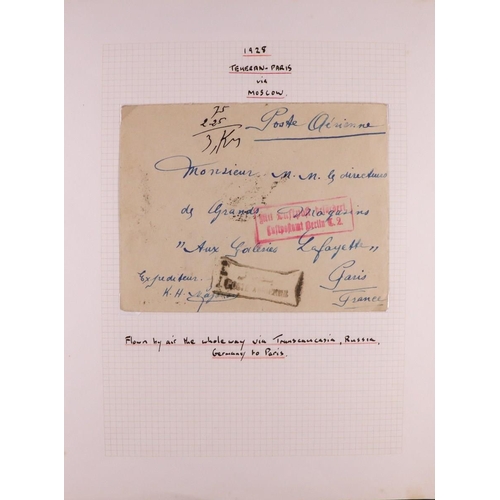 1928
TEHERAN-PARIS
via
MOSCOW.
75
2.25
3, Kr
Poste Aérienne
Monsieur M. M. les directeurs
de Grands Magasins
Mit Luftpost befördert
Luftpostamt Berlin C. 2.
"Aux Galeries Lafayette"
Expediteur:
Paris
K. H.
France
Flown by air the whole way via Transcaucasia, Russia,
Germany to Paris.